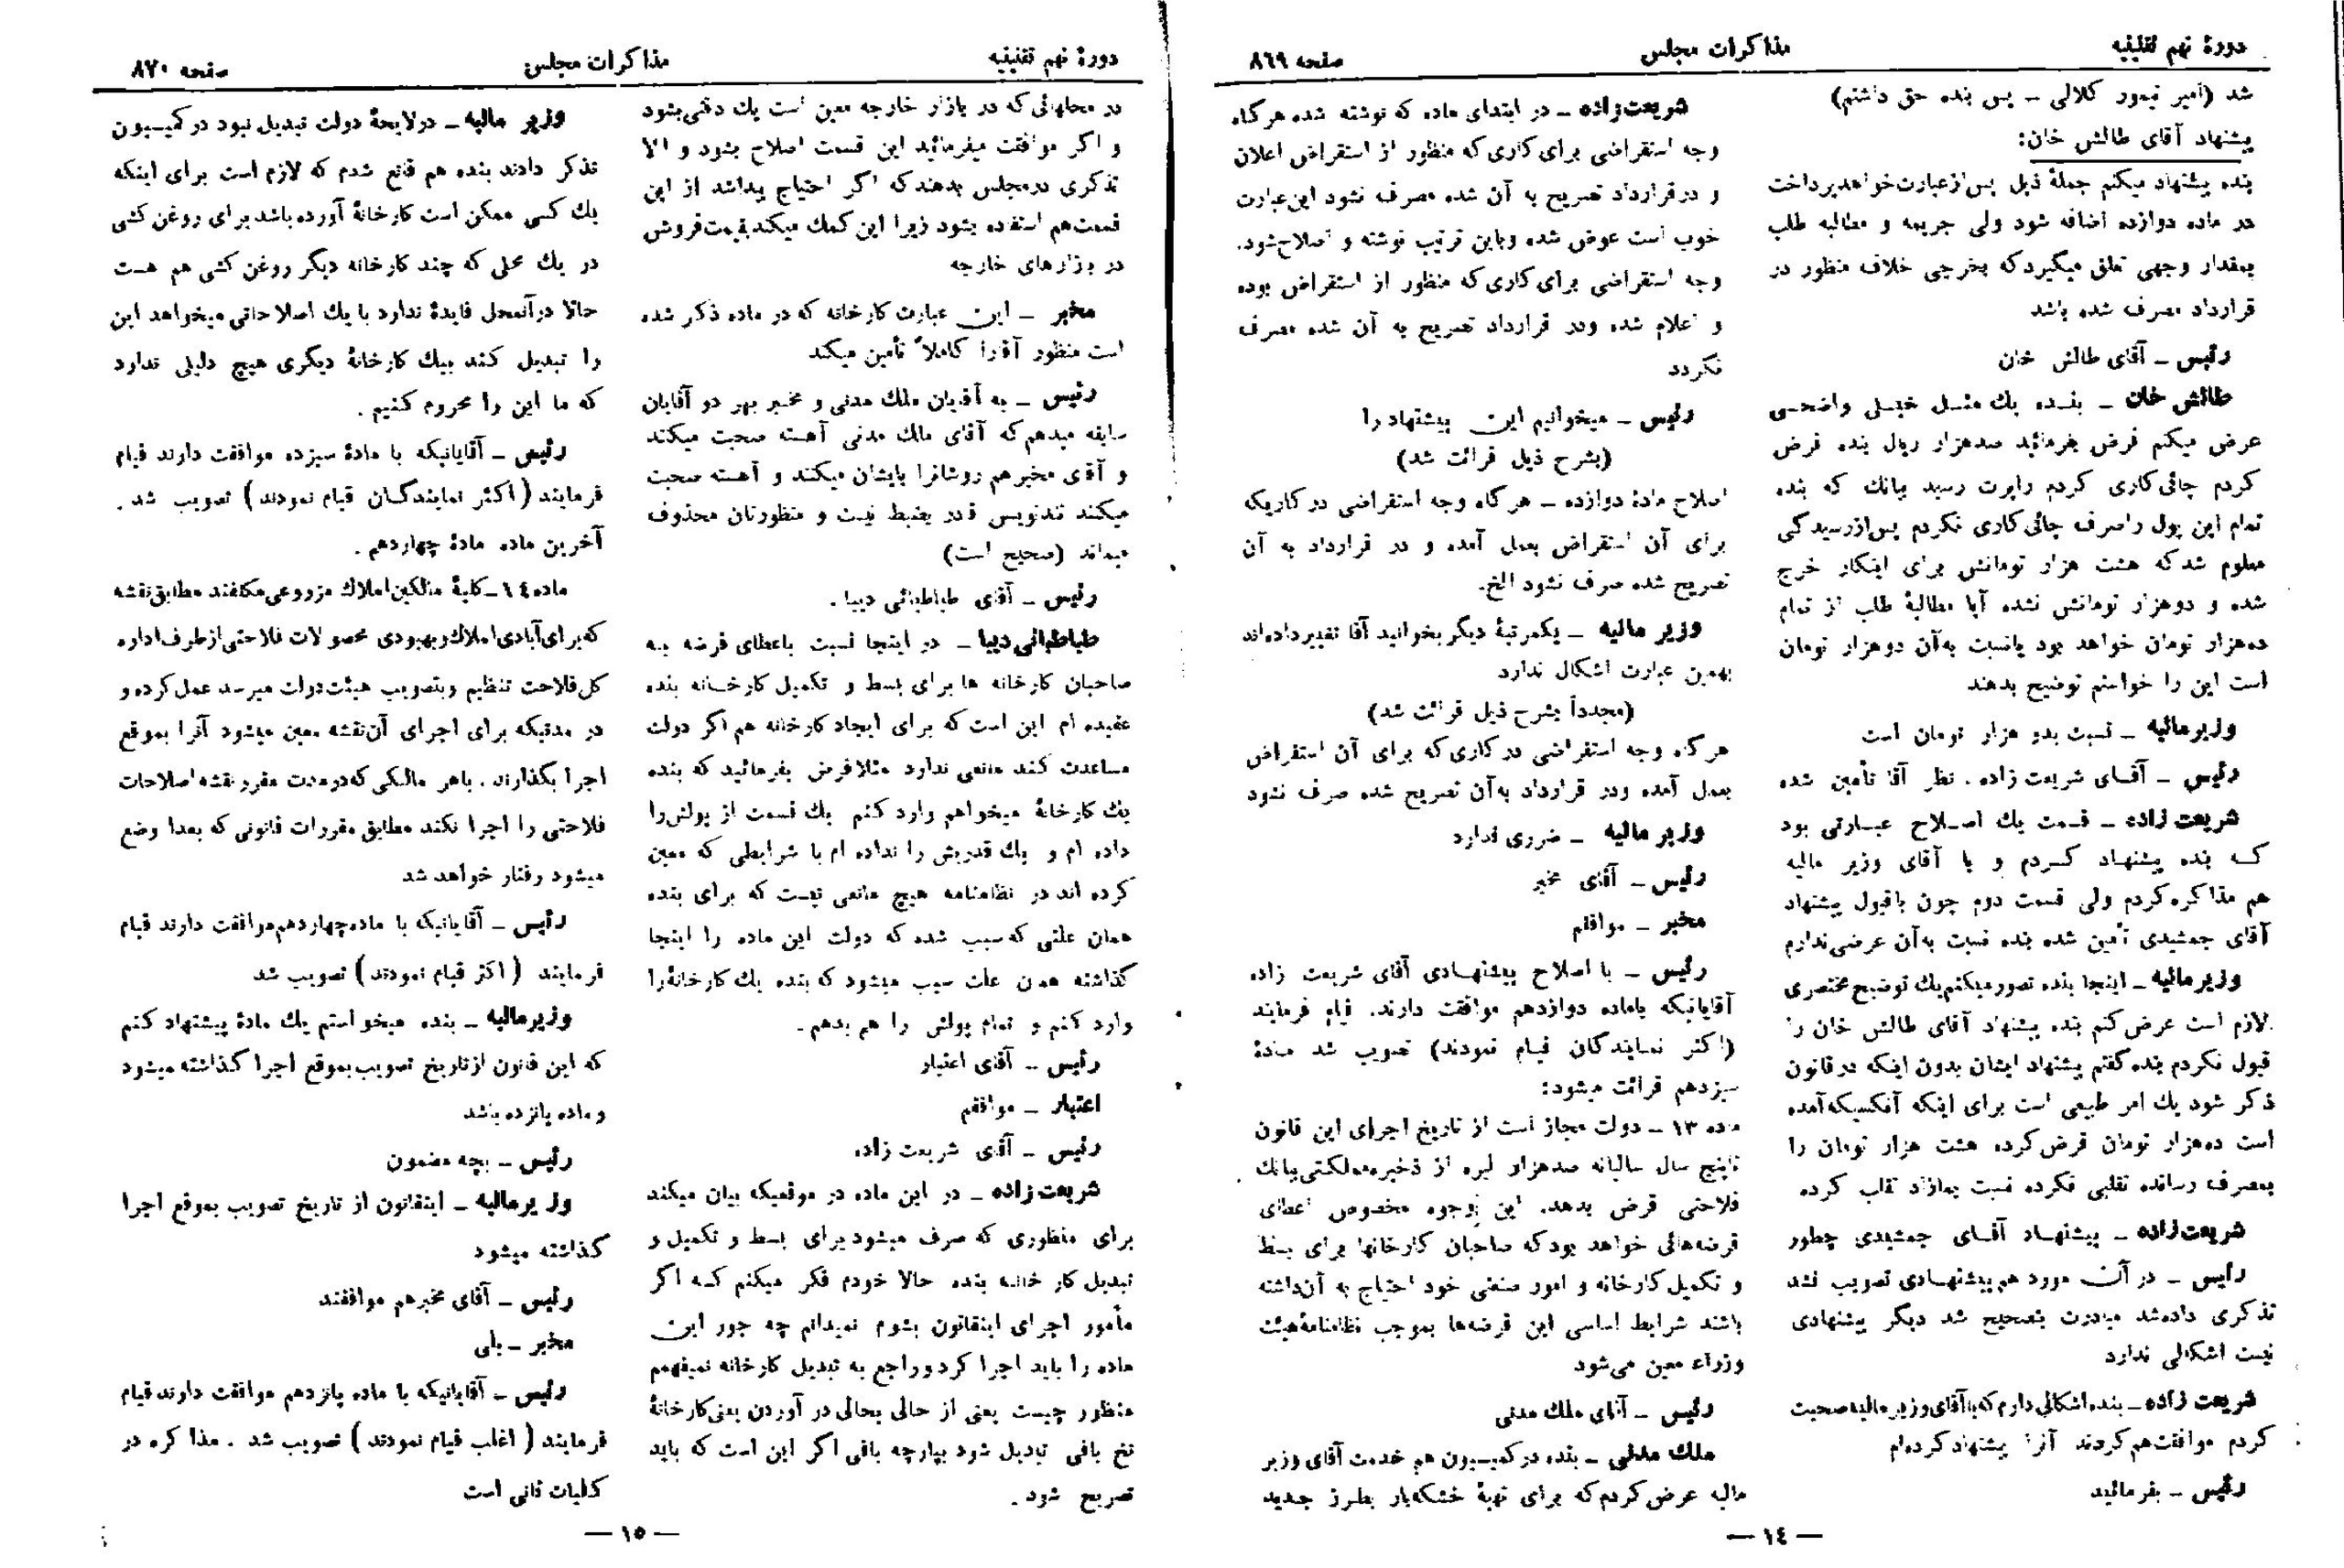 دورهٔ نهم تقنینیه
مذاکرات مجلس
صفحه ۸۶۹
شد (امیر تیمور کلالی ـ پس بنده حق داشتم)
پیشنهاد آقای طالش خان:
بنده پیشنهاد میکنم جملهٔ ذیل پس‌ازعبارت‌خواهدپرداخت
در ماده دوازده اضافه شود ولی جریمه و مطالبه طلب
بمقدار وجهی تعلق میگیردکه بخرجی خلاف منظور در
قرارداد مصرف شده باشد
رئیس ـ آقای طالش خان
طالش خان ـ بنده یك مثل خیلی واضحی
عرض میکنم فرض بفرمائید صدهزار ریال بنده قرض
کردم چائی‌کاری کردم راپرت رسید ببانك که بنده
تمام این پول راصرف چائی‌کاری نکردم پس‌ازرسیدگی
معلوم شدکه هشت هزار تومانش برای اینکار خرج
شده و دوهزار تومانش نشده آیا مطالبهٔ طلب از تمام
ده‌هزار تومان خواهد بود یانسبت به‌آن دوهزار تومان
است این را خواستم توضیح بدهند
وزیرمالیه ـ نسبت بدو هزار تومان است
رئیس ـ آقای شریعت زاده. نظر آقا تأمین شده
شریعت زاده ـ قسمت یك اصلاح عبارتی بود
که بنده پیشنهاد کردم و با آقای وزیر مالیه
هم مذاکره‌کردم ولی قسمت دوم چون باقبول پیشنهاد
آقای جمشیدی تأمین شده بنده نسبت به‌آن عرضی‌ندارم
وزیرمالیه ـ اینجا بنده تصورمیکنم‌یك توضیح‌مختصری
لازم است عرض‌کنم بنده پیشنهاد آقای طالش خان را
قبول نکردم بنده‌گفتم پیشنهاد ایشان بدون اینکه درقانون
ذکر شود یك امر طبیعی است برای اینکه آنکسیکه‌آمده
است ده‌هزار تومان قرض‌کرده هشت هزار تومان را
بمصرف رسانده تقلبی نکرده نسبت بمازاد تقلب کرده
شریعت‌زاده ـ پیشنهاد آقای جمشیدی چطور
رئیس ـ در آن مورد هم‌پیشنهادی تصویب نشد
تذکری داده‌شد مبادرت بتصحیح شد دیگر پیشنهادی
نیست اشکالی ندارد
شریعت زاده ـ بنده‌اشکالی‌دارم‌که‌باآقای‌وزیرمالیه‌صحبت
کردم موافقت‌هم‌کردند آنرا پیشنهاد کرده‌ام
رئیس ـ بفرمائید
شریعت‌زاده ـ در ابتدای ماده که نوشته شده هرگاه
وجه استقراضی برای‌کاری‌که منظور از استقراض اعلان
و درقرارداد تصریح به آن شده مصرف نشود این‌عبارت
خوب است عوض شده وباین ترتیب نوشته و اصلاح‌شود.
وجه استقراضی برای‌کاری‌که منظور از استقراض بوده
و اعلام شده ودر قرارداد تصریح به آن شده مصرف
نگردد
رئیس ـ میخوانیم این پیشنهاد را
(بشرح ذیل قرائت شد)
اصلاح مادهٔ دوازده ـ هرگاه وجه استقراضی در کاریکه
برای آن استقراض بعمل آمده و در قرارداد به آن
تصریح شده صرف نشود الخ.
وزیر مالیه ـ یکمرتبهٔ دیگربخوانید آقا تغییرداده‌اند
بهمین عبارت اشکال ندارد
(مجدداً بشرح ذیل قرائت شد)
هرگاه وجه استقراضی درکاری‌که برای آن استقراض
بعمل آمده ودر قرارداد به‌آن تصریح شده صرف نشود
وزیر مالیه ـ ضرری ندارد
رئیس ـ آقای مخبر
مخبر ـ موافقم
رئیس ـ با اصلاح پیشنهادی آقای شریعت زاده
آقایانیکه باماده دوازدهم موافقت دارند. قیام فرمایند
(اکثر نمایندگان قیام نمودند) تصویب شد مادهٔ
سیزدهم قرائت میشود:
ماده ۱۳ ـ دولت مجاز است از تاریخ اجرای این قانون
تاپنج سال سالیانه صدهزار لیره از ذخیره‌مملکتی‌ببانك
فلاحتی قرض بدهد. این وجوه مخصوص اعطای
قرضه‌هائی خواهد بودکه صاحبان کارخانها برای بسط
و تکمیل‌کارخانه و امور صنعتی خود احتیاج به آن‌داشته
باشند شرایط اساسی این قرضه‌ها بموجب نظامنامهٔ‌هیئت
وزراء معین می‌شود
رئیس ـ آقای ملك مدنی
ملك مدنی ـ بنده درکمیسیون هم خدمت آقای وزیر
مالیه عرض‌کردم‌که برای تهیهٔ خشکه‌بار بطرز جدید
— ۱٤ —
دورهٔ نهم تقنینیه
مذاکرات مجلس
صفحه ۸۷۰
در محلهائی‌که در بازار خارجه معین است یك دقتی‌بشود
و اگر موافقت میفرمائید این قسمت اصلاح بشود و الا
تذکری درمجلس بدهندکه اگر احتیاج پیداشد از این
قسمت‌هم استفاده بشود زیرا این‌کمك میکندبقیمت‌فروش
در بازارهای خارجه
مخبر ـ این عبارت کارخانه که در ماده ذکر شده
است منظور آقارا کاملاً تأمین میکند
رئیس ـ به آقایان ملك مدنی و مخبر بهر دو آقایان
سابقه میدهم‌که آقای ملك مدنی آهسته صحبت میکنند
و آقای مخبرهم روشانرا بایشان میکنند و آهسته صحبت
میکنند تندنویس قادر بضبط نیست و منظورتان محذوف
میماند (صحیح است)
رئیس ـ آقای طباطبائی دیبا.
طباطبائی دیبا ـ در اینجا نسبت باعطای قرضه به
صاحبان کارخانه ها برای بسط و تکمیل کارخانه بنده
عقیده ام این است‌که برای ایجاد کارخانه هم اگر دولت
مساعدت کند مانعی ندارد مثلا فرض بفرمائید که بنده
یك کارخانهٔ میخواهم وارد کنم یك قسمت از پولش‌را
داده ام و یك قدریش را نداده ام با شرایطی که معین
کرده اند در نظامنامه هیچ مانعی نیست که برای بنده
همان علتی که‌سبب شده که دولت این ماده را اینجا
گذاشته همان علت سبب میشود که بنده یك‌کارخانهٔ‌را
وارد کنم و تمام پولش را هم بدهم.
رئیس ـ آقای اعتبار
اعتبار ـ موافقم
رئیس ـ آقای شریعت زاده
شریعت‌زاده ـ در این ماده در موقعیکه بیان میکند
برای منظوری که صرف میشود برای بسط و تکمیل و
تبدیل کار خانه بنده حالا خودم فکر میکنم که اگر
مأمور اجرای اینقانون بشوم نمیدانم چه جور این
ماده را باید اجرا کرد و راجع به تبدیل کارخانه نمیفهمم
منظور چیست یعنی از حالی بحالی در آوردن یعنی‌کارخانهٔ
نخ بافی تبدیل شود بپارچه بافی اگر این است که باید
تصریح شود.
وزیر مالیه ـ درلایحهٔ دولت تبدیل نبود درکمیسیون
تذکر دادند بنده هم قانع شدم که لازم است برای اینکه
یك کسی ممکن است کارخانهٔ آورده‌باشد برای روغن‌کشی
در یك محلی که چند کارخانه دیگر روغن کشی هم هست
حالا درآنمحل فایدهٔ ندارد با یك اصلاحاتی میخواهد این
را تبدیل کند بیك کارخانهٔ دیگری هیچ دلیلی ندارد
که ما این را محروم کنیم.
رئیس ـ آقایانیکه با مادهٔ سیزده موافقت دارند قیام
فرمایند (اکثر نمایندگان قیام نمودند) تصویب شد.
آخرین ماده مادهٔ چهاردهم.
ماده ۱٤ـ کلیهٔ مالکین‌املاك مزروعی‌مکلفند مطابق‌نقشه
که‌برای‌آبادی‌املاك‌وبهبودی محصولات فلاحتی‌ازطرف‌اداره
کل‌فلاحت تنظیم وبتصویب هیئت‌دولت میرسد عمل‌کرده و
در مدتیکه برای اجرای آن‌نقشه معین میشود آنرا بموقع
اجرا بگذارند. باهر مالکی‌که‌درمدت مقررنقشه‌اصلاحات
فلاحتی را اجرا نکند مطابق مقررات قانونی که بعدا وضع
میشود رفتار خواهد شد
رئیس ـ آقایانیکه با ماده‌چهاردهم‌موافقت دارند قیام
فرمایند (اکثر قیام نمودند) تصویب شد
وزیرمالیه ـ بنده میخواستم یك مادهٔ پیشنهاد کنم
که این قانون ازتاریخ تصویب‌بموقع اجرا گذاشته میشود
و ماده پانزده باشد
رئیس ـ بچه مضمون
وزیرمالیه ـ اینقانون از تاریخ تصویب بموقع اجرا
گذاشته میشود
رئیس ـ آقای مخبرهم موافقند
مخبر ـ بلی
رئیس ـ آقایانیکه با ماده پانزدهم موافقت دارند قیام
فرمایند (اغلب قیام نمودند) تصویب شد. مذاکره در
کلیات ثانی است
— ۱٥ —